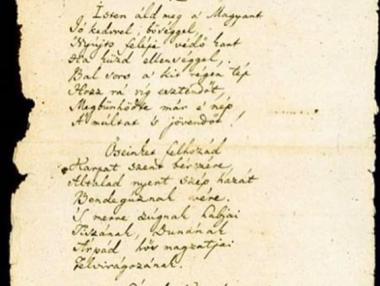 Isten áld meg a Magyart
Jó kedvvel, bőséggel,
Nyújts feléje védő kart
Ha küzd ellenséggel,
Bal sors a kit régen tép
Hozz rá víg esztendőt,
Megbűnhődte már e' nép
A múltat 's jövendőt!
Őseinket felhozád
Kárpát szent bérczére,
Általad nyert szép hazát
Bendegúznak vére.
'S merre zúgnak habjai
Tiszának, Dunának
Árpád hős magzatjai
Felvirágozának.